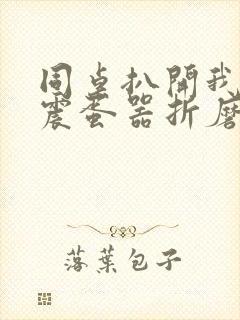 同桌扒開我
震蛋器折磨
落葉包子